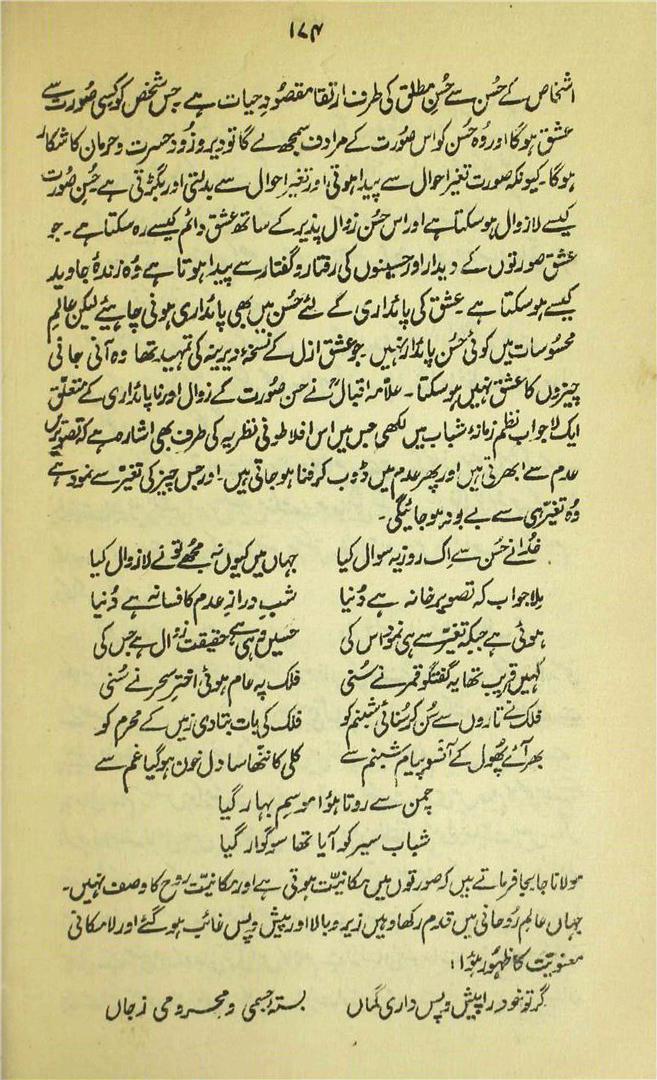 ۱۷۴
اشخاص کے حُسن سے حُسنِ مطلق کی طرف ارتقا مقصودِ حیات ہے۔ جس شخص کو کسی صُورت سے
عشق ہوگا اور وُہ حُسن کو اس صُورت کے مرادف سمجھ لے گا تو دیر و زُود حسرت و حرمان کا شکار
ہوگا۔ کیونکہ صورت تغیر احوال سے پیدا ہوتی اور تغیر احوال سے بدلتی اور بگڑتی ہے حُسنِ صُورت
کیسے لازوال ہوسکتا ہے اور اس حُسن زوال پذیر کے ساتھ عشق دائم کیسے رہ سکتا ہے۔ جو
عشق صورتوں کے دیدار اور حسینوں کی رفتار و گفتار سے پیدا ہوتا ہے وُہ زندۂ جاوید
کیسے ہوسکتا ہے۔ عشق کی پائداری کے لئے حُسن میں بھی پائداری ہونی چاہیئے لیکن عالمِ
محسُوسات میں کوئی حُسن پائدار نہیں۔ جو عشق ازل کے نسخۂ دیرینہ کی تمہید تھا وہ آنی جانی
چیزوں کا عشق نہیں ہوسکتا۔ علامہ اقبالؒ نے حسن صُورت کے زوال اور ناپائداری کے متعلق
ایک لاجواب نظم زمانۂ شباب میں لکھی جس میں اس افلاطونی نظریہ کی طرف بھی اشارہ ہے کہ تصویریں
عدم سے ابھرتی ہیں اور پھر عدم میں ڈوب کر فنا ہو جاتی ہیں۔ اور جس چیز کی تغیّر سے نمود ہے
وُہ تغیّر ہی سے بے بود ہو جائیگی۔
خُدا نے حُسن سے اک روز یہ سوال کیا جہاں میں کیوں نہ مجھے تُو نے لازوال کیا
مِلا جواب کہ تصویر خانہ ہے دُنیا شبِ درازِ عدم کا فسانہ ہے دُنیا
ہوئی ہے جبکہ تغیّر سے ہی نمود اس کی حسیں وُہی ہے حقیقت زوال ہے جس کی
کہیں قریب تھا یہ گفتگو قمر نے سُنی فلک پہ عام ہوئی اخترِ سحر نے سُنی
فلک نے تاروں سے سُن کر سُنائی شبنم کو فلک کی بات بتا دی زمیں کے محرم کو
بھر آئے پُھول کے آنسو پیامِ شبنم سے کلی کا ننھا سا دل خون ہو گیا غم سے
چمن سے روتا ہوٴا موسمِ بہار گیا
شباب سیر کو آیا تھا سوگوار گیا
مولانا جابجا فرماتے ہیں کہ صورتوں میں مکانیّت ہوتی ہے اور مکانیّت رُوح کا وصف نہیں۔
جہاں عالمِ رُوحانی میں قدم رکھا وہیں زیر و بالا اور پیش و پس غائب ہو گئے اور لامکانی
معنویّت کا ظہُور ہوٴا:
گر تو خود را پیش و پس داری گماں بستۂ جسمی و محرومی ز جاں